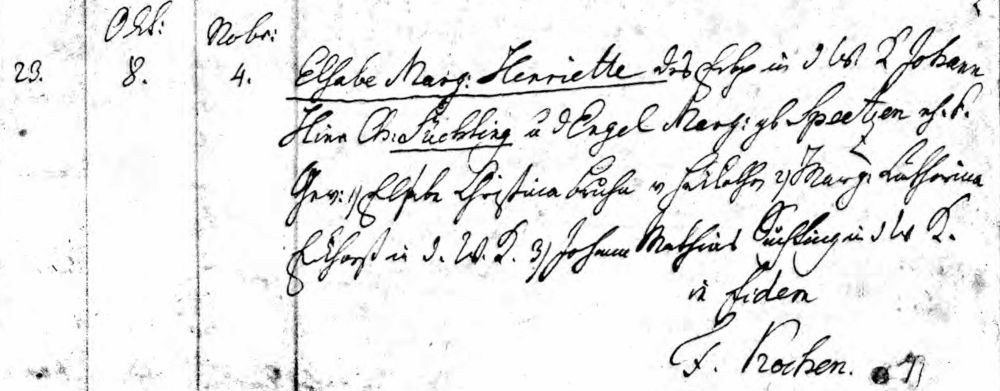 Octb: Nobr:
23. 8. 4. Elsabe Marg: Henriette des in d W. K Johann
Hinr Ch: Süchting u d Engel Marg: gb Speetzen eh. T.
Gev: 1) Elsabe Christina Bruhn v 2) Marg: Catharina
in d. W. K. 3) Johann Mathias Süchting in d W K.
in fidem
F. Rochen.